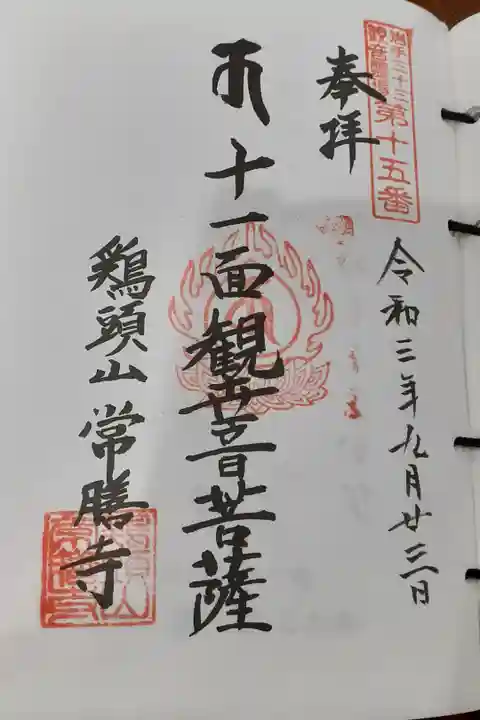 岩手三十三
観音霊場
第十五番
令和三年九月廿三日
奉拝
十一面観世音菩薩
鶏頭山 常膳寺